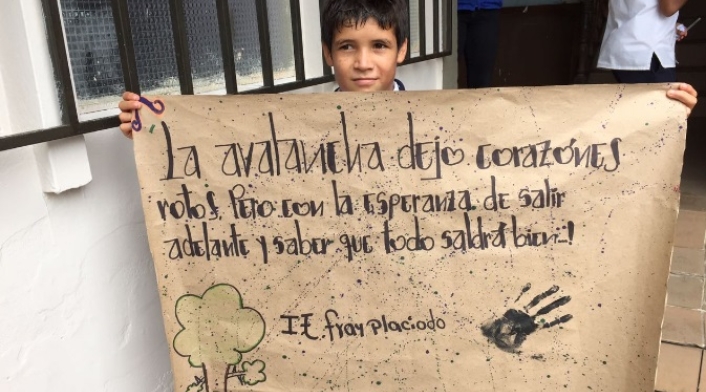 La avalancha dejo corazones
rotos. Pero con la esperanza de salir
adelante y saber que todo saldrá bien..!
I.E fray placiodo